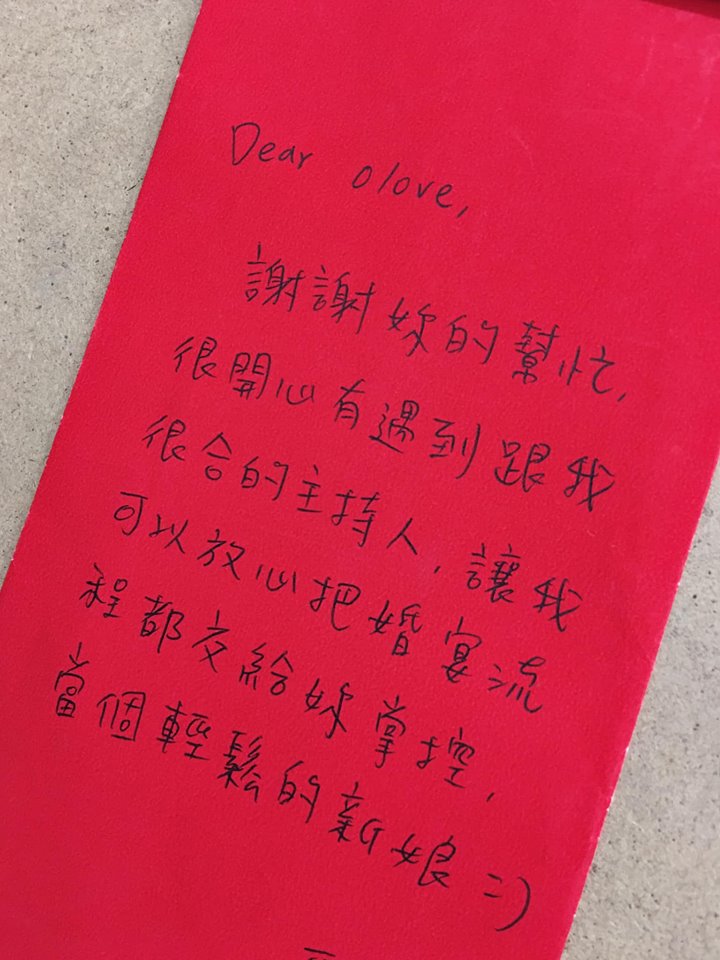 Dear olove,
謝謝妳的幫忙,
很開心有遇到跟我
很合的主持人,讓我
可以放心把婚宴流
程都交給妳掌控,
當個輕鬆的新娘 =)